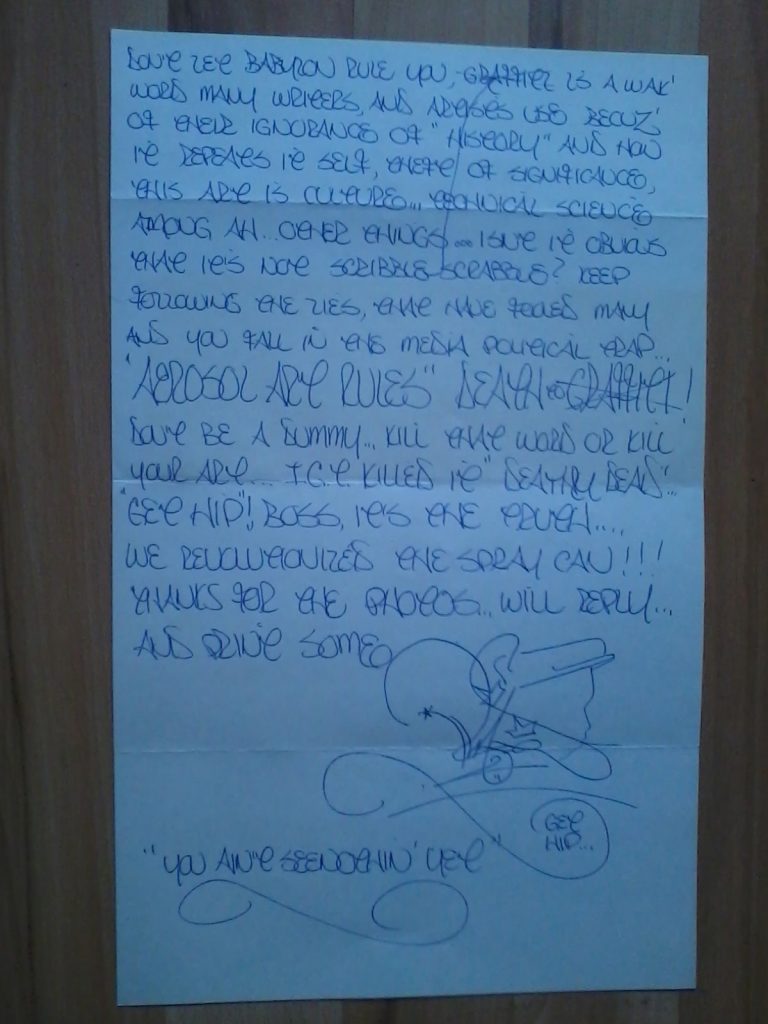 DON'T LET BABYLON RULE YOU, GRAFFITI IS A WAK'
WORD MANY WRITERS, AND ARTISTS USE BECUZ'
OF THEIR IGNORANCE OF "HISTORY" AND HOW
IT REPEATS IT SELF, THEFT OF SIGNIFICANCE,
THIS ART IS CULTURE... TECHNICAL SCIENCE
AMONG AH... OTHER THINGS... ISN'T IT OBVIOUS
THAT IT'S NOT SCRIBBLE-SCRABBLE? KEEP
FOLLOWING THE LIES, THAT HAVE FOOLED MANY
AND YOU FALL IN THE MEDIA POLITICAL TRAP...
"AEROSOL ART RULES" DEATH TO GRAFFITI!
DON'T BE A DUMMY... KILL THAT WORD OR KILL
YOUR ART... KILLED IT "DEATHLY DEAD"..
"GET HIP"! BOSS, IT'S THE TRUTH....
WE REVOLUTIONIZED THE SPRAY CAN!!!
THANKS FOR THE PHOTOS.. WILL REPLY...
AND PRINT SOME
GET
HIP...
"YOU AIN'T SEEN NOTHIN' YET"